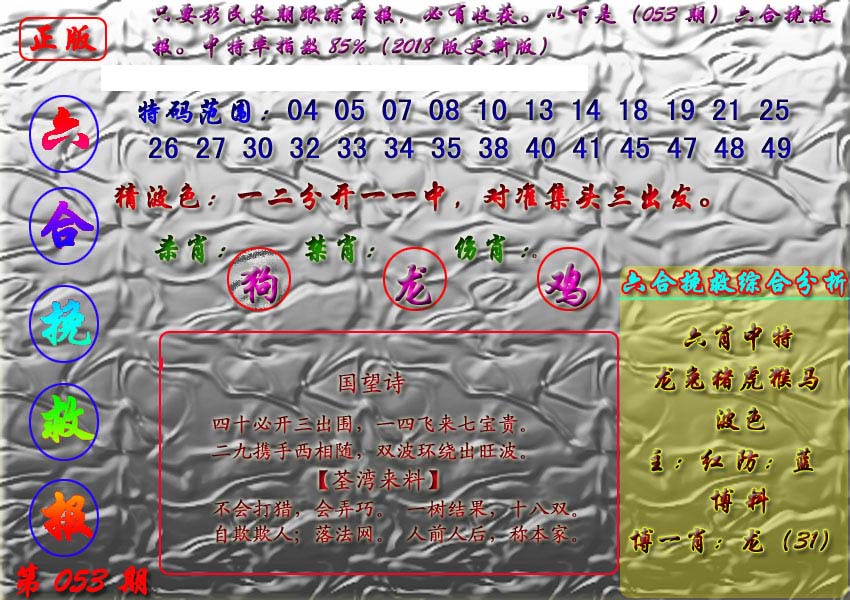 正版
只要彩民长期跟踪本报，必有收获。以下是（053期）六合挽救
报。中特率指数85%（2018版更新版）
六合挽救报
第053期
特码范围：04 05 07 08 10 13 14 18 19 21 25
26 27 30 32 33 34 35 38 40 41 45 47 48 49
猜波色：一二分开一一中，对准集头三出发。
杀肖：狗 禁肖：龙 伤肖：鸡。
国望诗
四十必开三出围，一四飞来七宝贵。
二九携手西相随，双波环绕出旺波。
【荃湾来料】
不会打猎，会弄巧。 一树结果，十八双。
自欺欺人；落法网。 人前人后，称本家。
六合挽救综合分析
六肖中特
龙兔猪虎猴马
波色
主：红防：蓝
博料
博一肖：龙（31）